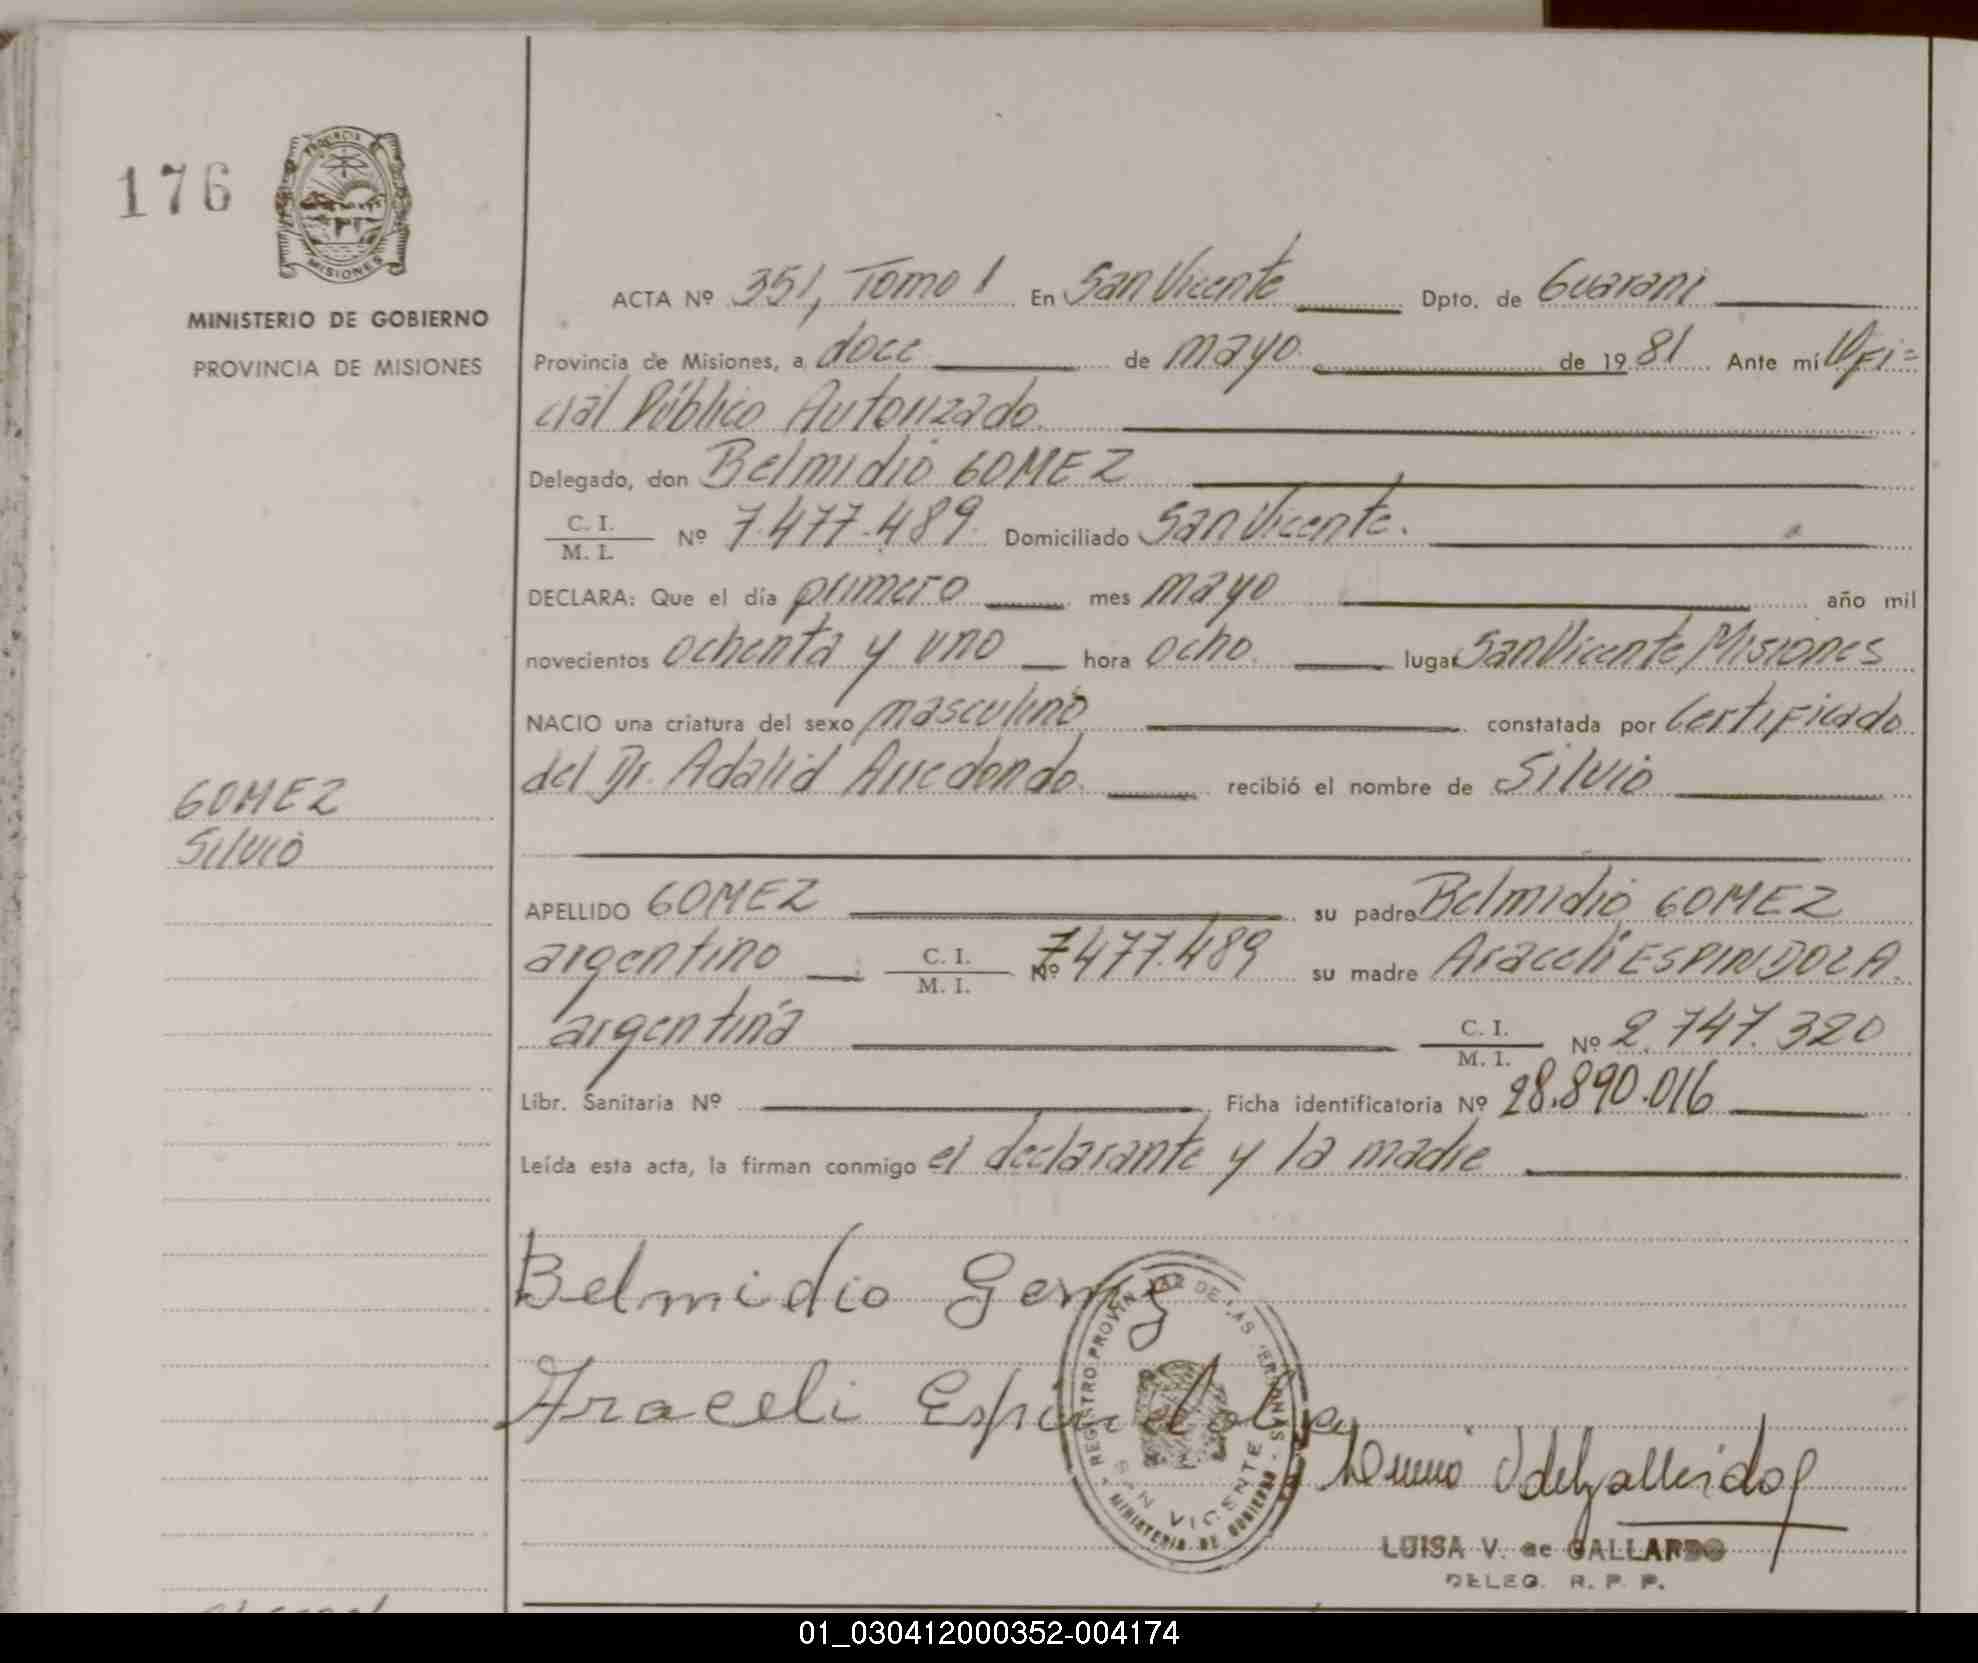 176
PROVINCIA
MISIONES
MINISTERIO DE GOBIERNO
PROVINCIA DE MISIONES
ACTA Nº 351, Tomo I En San Vicente Dpto. de Guaraní
Provincia de Misiones, a doce de mayo de 1981 Ante mí Ofi=
cial Público Autorizado.
Delegado, don Belmidio GOMEZ
C. I.
M. I. Nº 7.477.489. Domiciliado San Vicente.
DECLARA: Que el día primero mes mayo año mil
novecientos ochenta y uno hora ocho. lugar San Vicente, Misiones
NACIO una criatura del sexo masculino constatada por Certificado
del Dr. Adalid Arredondo. recibió el nombre de Silvio
GOMEZ
Silvio
APELLIDO GOMEZ su padre Belmidio GOMEZ
argentino C. I. M. I. Nº 7477.489 su madre Araceli ESPINDOLA.
argentina C. I. M. I. Nº 2.747.320
Libr. Sanitaria Nº Ficha identificatoria Nº 28.890.016
Leída esta acta, la firman conmigo el declarante y la madre
Belmidio Gomez
Araceli Espindola
REGISTRO PROVINCIAL DE LAS PERSONAS
SAN VICENTE
MINISTERIO DE GOBIERNO
LUISA V. de GALLARDO
DELEG. R. P. P.
01_030412000352-004174